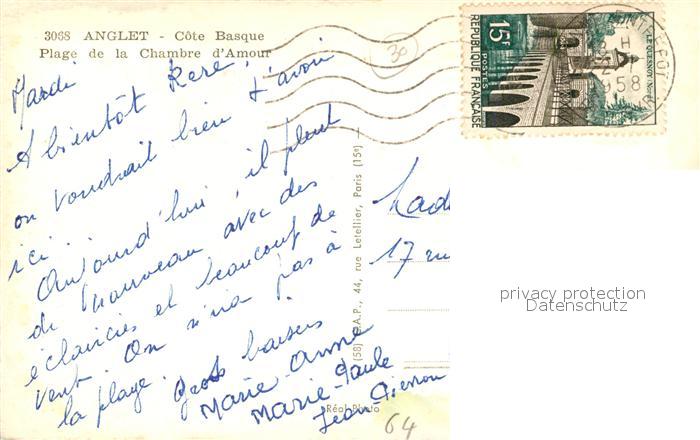 3068 ANGLET - Côte Basque
Plage de la Chambre d'Amour
30
15F
POSTES
REPUBLIQUE FRANÇAISE
LE QUESNOY (Nord)
1958
Mardi
A bientôt
on voudrait bien t'avoir
ici.
Aujourd'hui, il pleut
de nouveau avec des
éclaircies et beaucoup de
vent. On n'ira pas à
la plage. Gros baisers
Marie-Anne
Marie-Paule
Jean-Pierre
(58) S.A.P., 44, rue Letellier, Paris (15e)
17 ru
privacy protection
Datenschutz
Réal-Photo
64